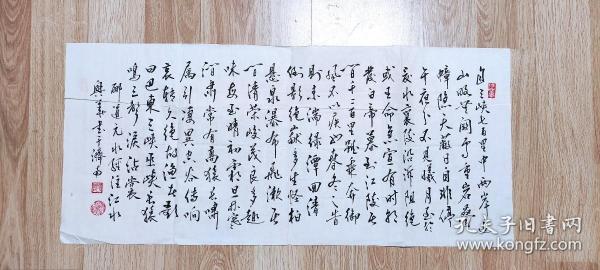 自三峡七百里中两岸连
山略无阙处重岩叠
嶂隐天蔽日自非停
午夜分不见曦月至于
夏水襄陵沿溯阻绝
或王命急宣有时朝
发白帝暮到江陵其
间千二百里虽乘奔御
风不以疾也春冬之时
则素湍绿潭回清
倒影绝巘多生怪柏
悬泉瀑布飞漱其
间清荣峻茂良多趣
味每至晴初霜旦林寒
涧肃常有高猿长啸
属引凄异空谷传响
哀转久绝故渔者歌
曰巴东三峡巫峡长猿
鸣三声泪沾裳
郦道元水经注江水
书于济南
孔夫子旧书网
kongfz.com